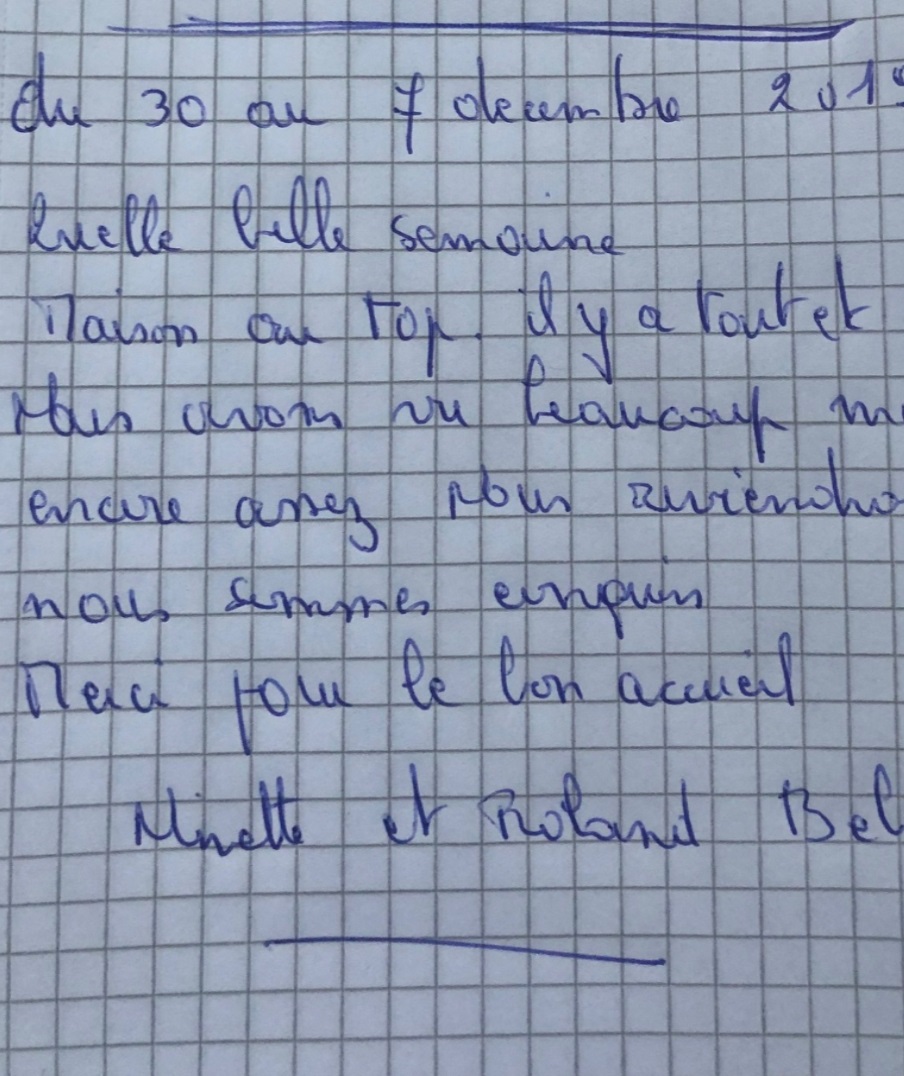 du 30 au 7 decembre 201
Quelle belle semaine
Maison au Top. il y a tout et
Nous avons vu beaucoup m
encore assez Nous
nous sommes
Merci pour le bon accueil
Ninette et Roland Bel